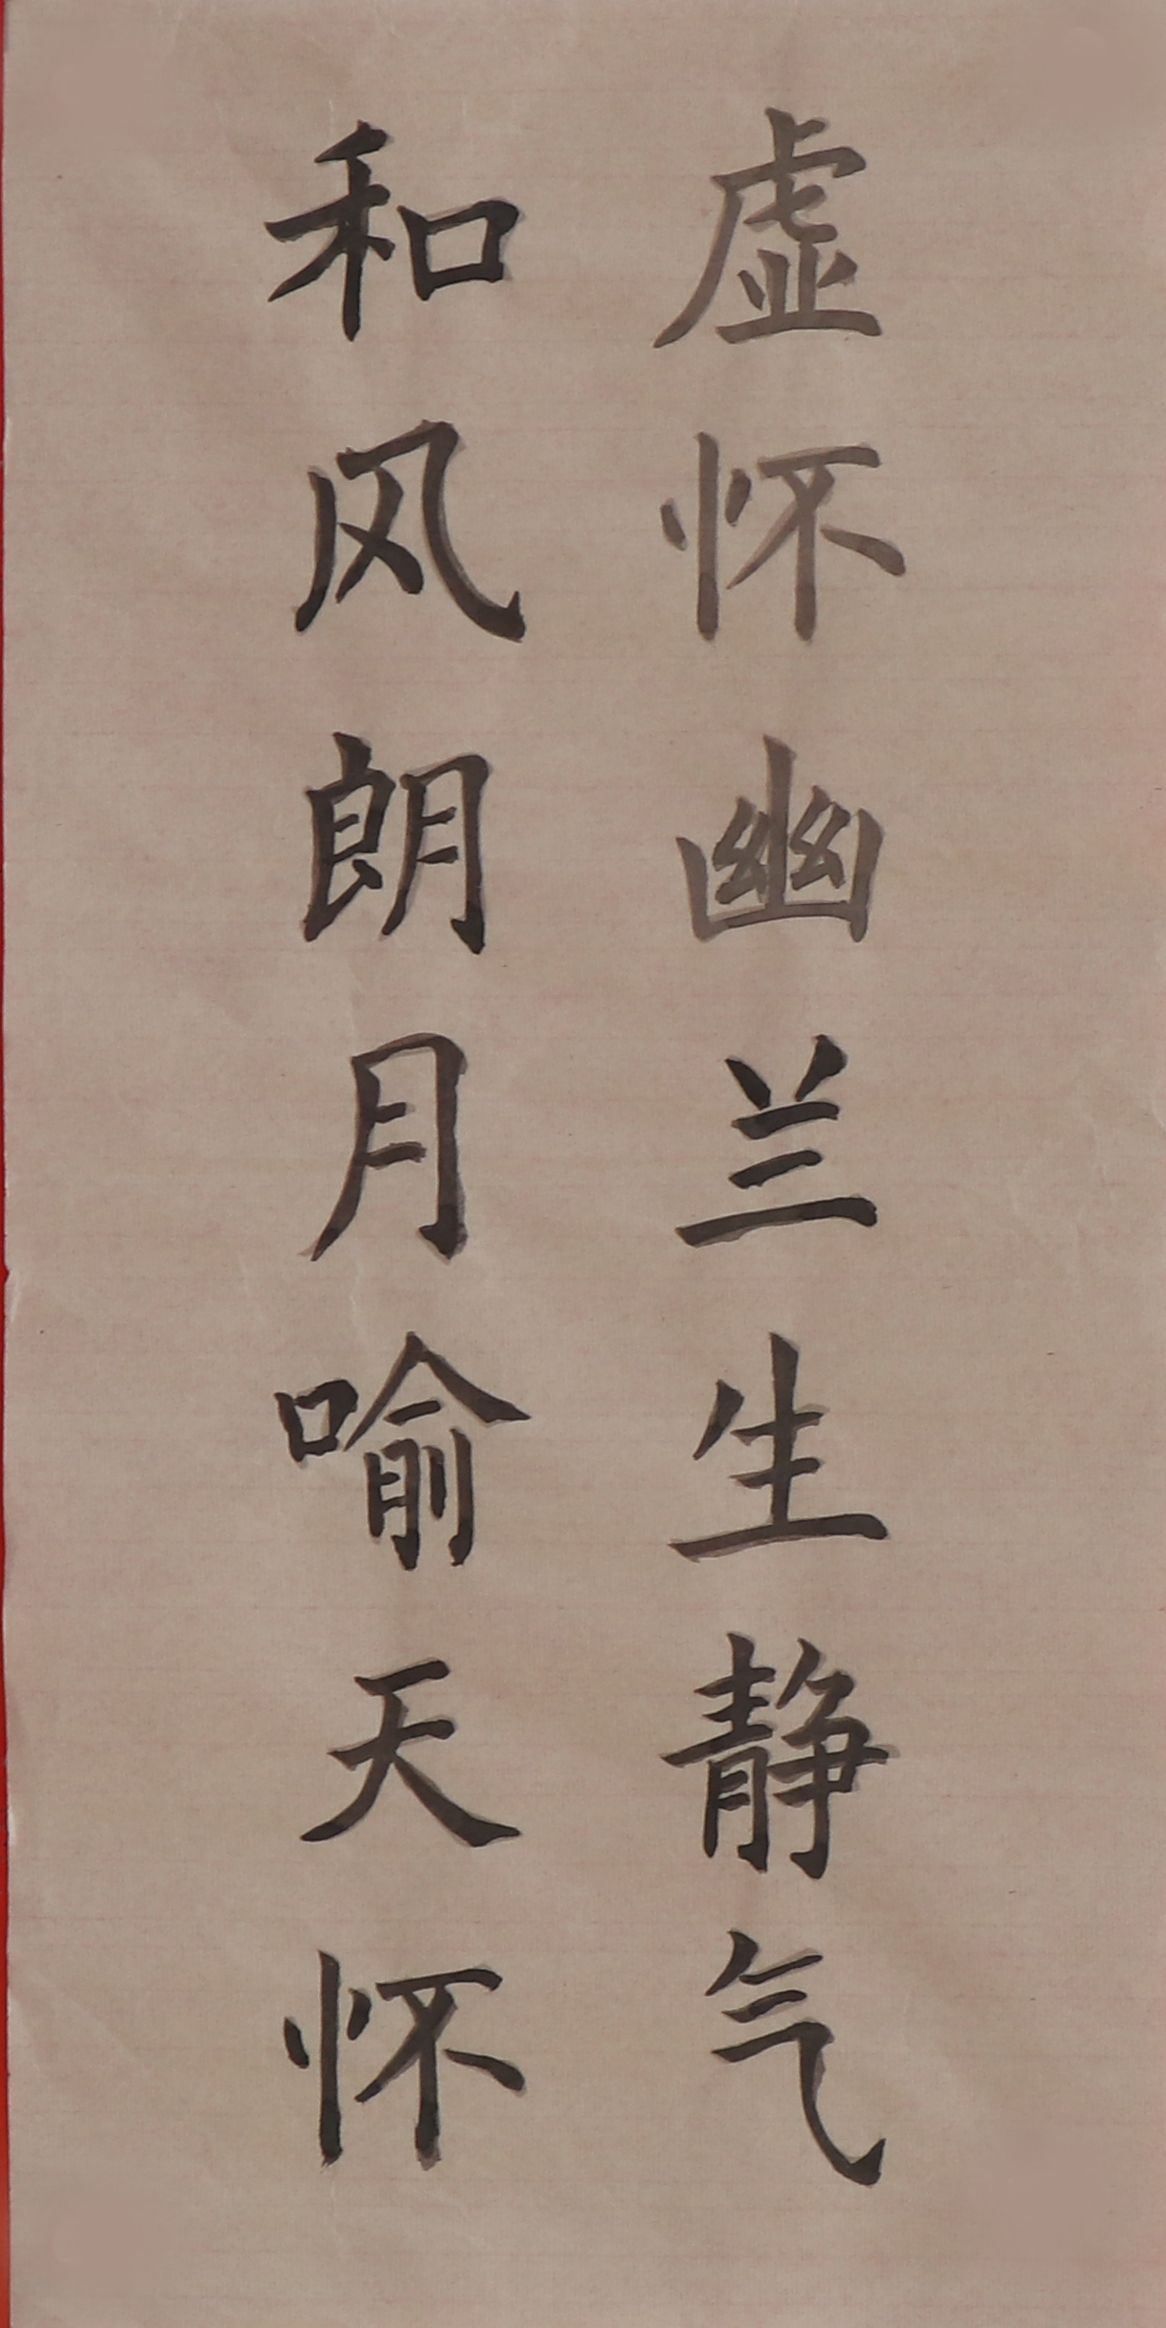 虚怀幽兰生静气
和风朗月喻天怀